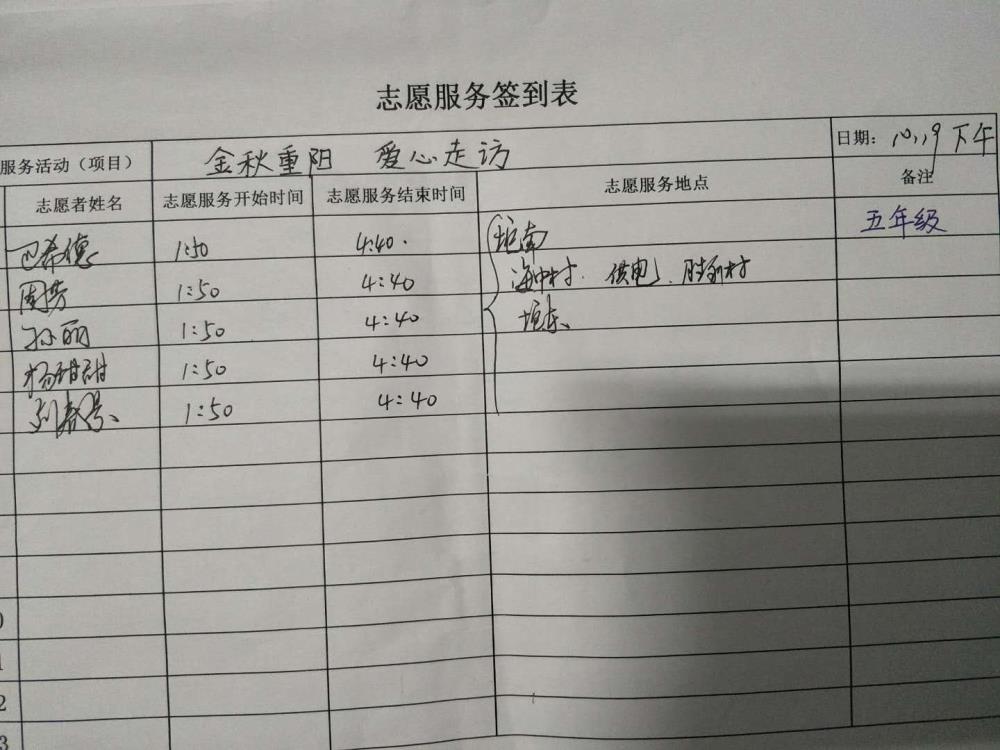 志愿服务签到表
服务活动（项目） 金秋重阳 爱心走访 日期：10,19 下午
志愿者姓名 志愿服务开始时间 志愿服务结束时间 志愿服务地点 备注
巴希德 1:50 4:40 垣南 五年级
周芳 1:50 4:40 海中村. 供电 胜利村
孙丽 1:50 4:40 垣东
杨甜甜 1:50 4:40
刘 1:50 4:40
0
1
2
3